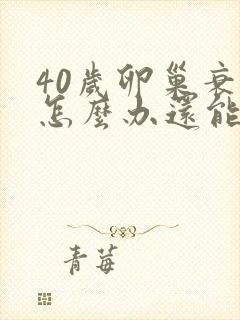 40歲卵巢衰
怎麼办還能
青莓